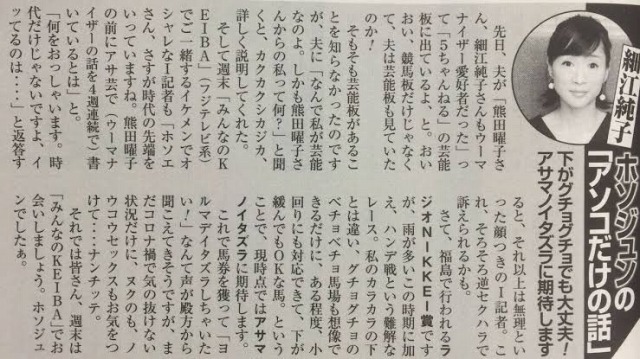 細江純子
ホソジュンの
「アソコだけの話」
下がグチョグチョでも大丈夫!
アサマノイタズラに期待します
先日、夫が「熊田曜子さ
ん、細江純子さんもウーマ
ナイザー愛好者だった」っ
て『5ちゃんねる』の芸能
板に出ているよ、と。おい
おい、競馬板だけじゃなく
て、夫は芸能板も見ていた
のか!
そもそも芸能板があるこ
とを知らなかったのです
が、夫に「なんで私が芸能
なのよ。しかも熊田曜子さ
んからの私って何?」と聞
くと、カクカクシカジカ、
詳しく説明してくれた。
そして週末「みんなのK
EIBA」(フジテレビ系)
でご一緒するイケメンでオ
シャレなI記者も「ホソエ
さん、さすが時代の先端を
いっていますね。熊田曜子
の前にアサ芸で(ウーマナ
イザーの話を4週連続で)書
いているとは」と。
「何をおっしゃいます。時
代だけじゃないですよ、イ
ッてるのは・・・・」と返答す
ると、それ以上は無理とい
った顔つきのI記者。こ
れ、そろそろ逆セクハラで
訴えられるかも。
さて、福島で行われるラ
ジオNIKKEI賞です
が、雨が多いこの時期に加
え、ハンデ戦という難解な
レース。私のカラカラの下
とは違い、グチョグチョの
ベチョベチョ馬場も想像で
きるだけに、ある程度、小
回りにも対応できて、下が
緩んでもOKな馬。という
ことで、現時点ではアサマ
ノイタズラに期待します。
これで馬券を獲って「ヨ
ルマデイタズラしちゃいた
い!」なんて声が殿方から
聞こえてきそうですが、ま
だコロナ禍で気の抜けない
状況だけに、ヌクのも、ノ
ウコウセックスもお気をつ
けて・・・・ナンチッテ。
それでは皆さん、週末は
「みんなのKEIBA」でお
会いしましょう。ホソジュ
ンでしたぁ。